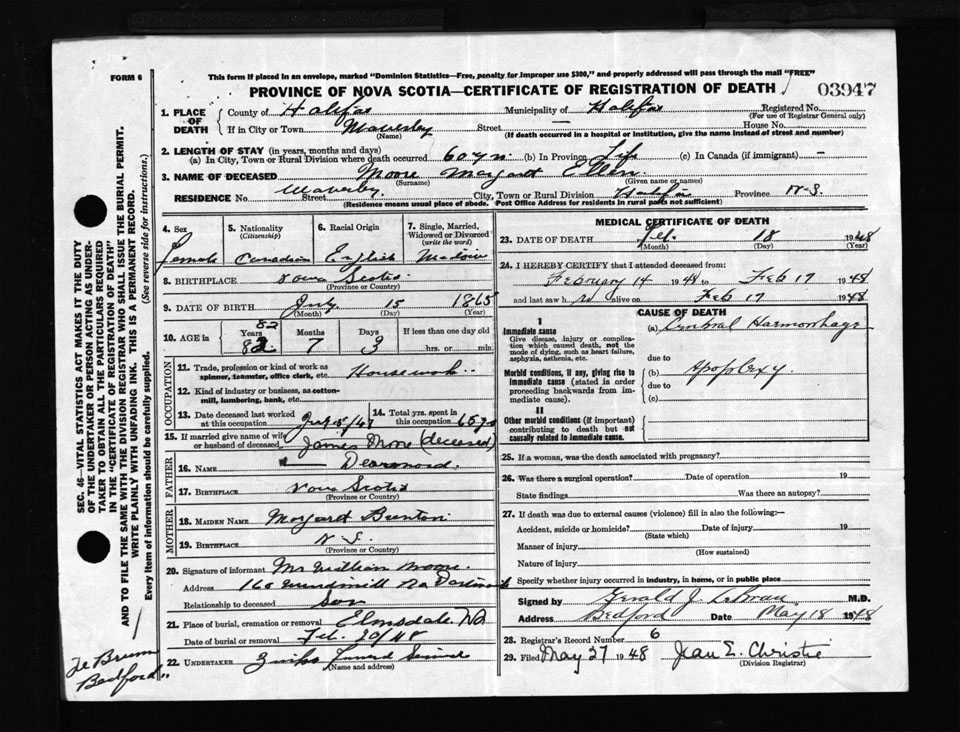 FORM 6
This form if placed in an envelope, marked "Dominion Statistics—Free, penalty for improper use $300," and properly addressed will pass through the mail "FREE"
PROVINCE OF NOVA SCOTIA—CERTIFICATE OF REGISTRATION OF DEATH 03947
1. PLACE OF DEATH County of Halifax Municipality of Halifax Registered No.
(For use of Registrar General only)
If in City or Town Waverley Street — House No.
(Name) (If death occurred in a hospital or institution, give the name instead of street and number)
2. LENGTH OF STAY (in years, months and days)
(a) In City, Town or Rural Division where death occurred 60 yrs. (b) In Province Life (c) In Canada (if immigrant) —
3. NAME OF DECEASED Moore Margaret Ellen
(Surname) (Given name or names)
RESIDENCE No. Waverley Street City, Town or Rural Division Halifax Province N.S.
(Residence means usual place of abode. Post Office Address for residents in rural parts not sufficient)
4. Sex Female
5. Nationality (Citizenship) Canadian
6. Racial Origin English
7. Single, Married, Widowed or Divorced (write the word) Widow
8. BIRTHPLACE Nova Scotia
(Province or Country)
9. DATE OF BIRTH July 15 1865
(Month) (Day) (Year)
10. AGE in Years 82 82 Months 7 Days 3 If less than one day old hrs. or min.
OCCUPATION
11. Trade, profession or kind of work as spinner, teamster, office clerk, etc. Housework
12. Kind of industry or business, as cotton-mill, lumbering, bank, etc.
13. Date deceased last worked at this occupation /47
14. Total yrs. spent in this occupation 65 yrs
15. If married give name of wife or husband of deceased James Moore (deceased)
FATHER
16. NAME — Dearmond.
17. BIRTHPLACE Nova Scotia
(Province or Country)
MOTHER
18. MAIDEN NAME Margaret Brenton
19. BIRTHPLACE N.S.
(Province or Country)
20. Signature of informant Mr William Moore.
Address 160 Windmill Rd Dartmouth
Relationship to deceased Son
21. Place of burial, cremation or removal Elmsdale NS
Date of burial or removal Feb. 20/48
22. UNDERTAKER
(Name and address)
MEDICAL CERTIFICATE OF DEATH
23. DATE OF DEATH Feb. 18 1948
(Month) (Day) (Year)
24. I HEREBY CERTIFY that I attended deceased from:
February 14 1948 to Feb 17 1948
and last saw h er alive on Feb 17 1948
CAUSE OF DEATH
I
Immediate cause
Give disease, injury or complication which caused death, not the mode of dying, such as heart failure, asphyxia, asthenia, etc.
(a) Cerebral Haemorrhage
due to
Morbid conditions, if any, giving rise to immediate cause (stated in order proceeding backwards from immediate cause).
(b) Apoplexy
due to
(c)
II
Other morbid conditions (if important) contributing to death but not causally related to immediate cause.
25. If a woman, was the death associated with pregnancy?
26. Was there a surgical operation? Date of operation 19
State findings Was there an autopsy?
27. If death was due to external causes (violence) fill in also the following:—
Accident, suicide or homicide? Date of injury 19
(State which)
Manner of injury
(How sustained)
Nature of injury
Specify whether injury occurred in industry, in home, or in public place
Signed by Gerald J. LeBrun M.D.
Address Bedford Date May 18 1948
28. Registrar's Record Number 6
29. Filed May 27 1948 Jean E. Christie
(Division Registrar)
SEC. 46—VITAL STATISTICS ACT MAKES IT THE DUTY
OF THE UNDERTAKER OR PERSON ACTING AS UNDER-
TAKER TO OBTAIN ALL THE PARTICULARS REQUIRED
IN THE "CERTIFICATE OF REGISTRATION OF DEATH"
AND TO FILE THE SAME WITH THE DIVISION REGISTRAR WHO SHALL ISSUE THE BURIAL PERMIT.
WRITE PLAINLY WITH UNFADING INK. THIS IS A PERMANENT RECORD.
Every item of information should be carefully supplied. (See reverse side for instructions.)
Le Brun
Bedford